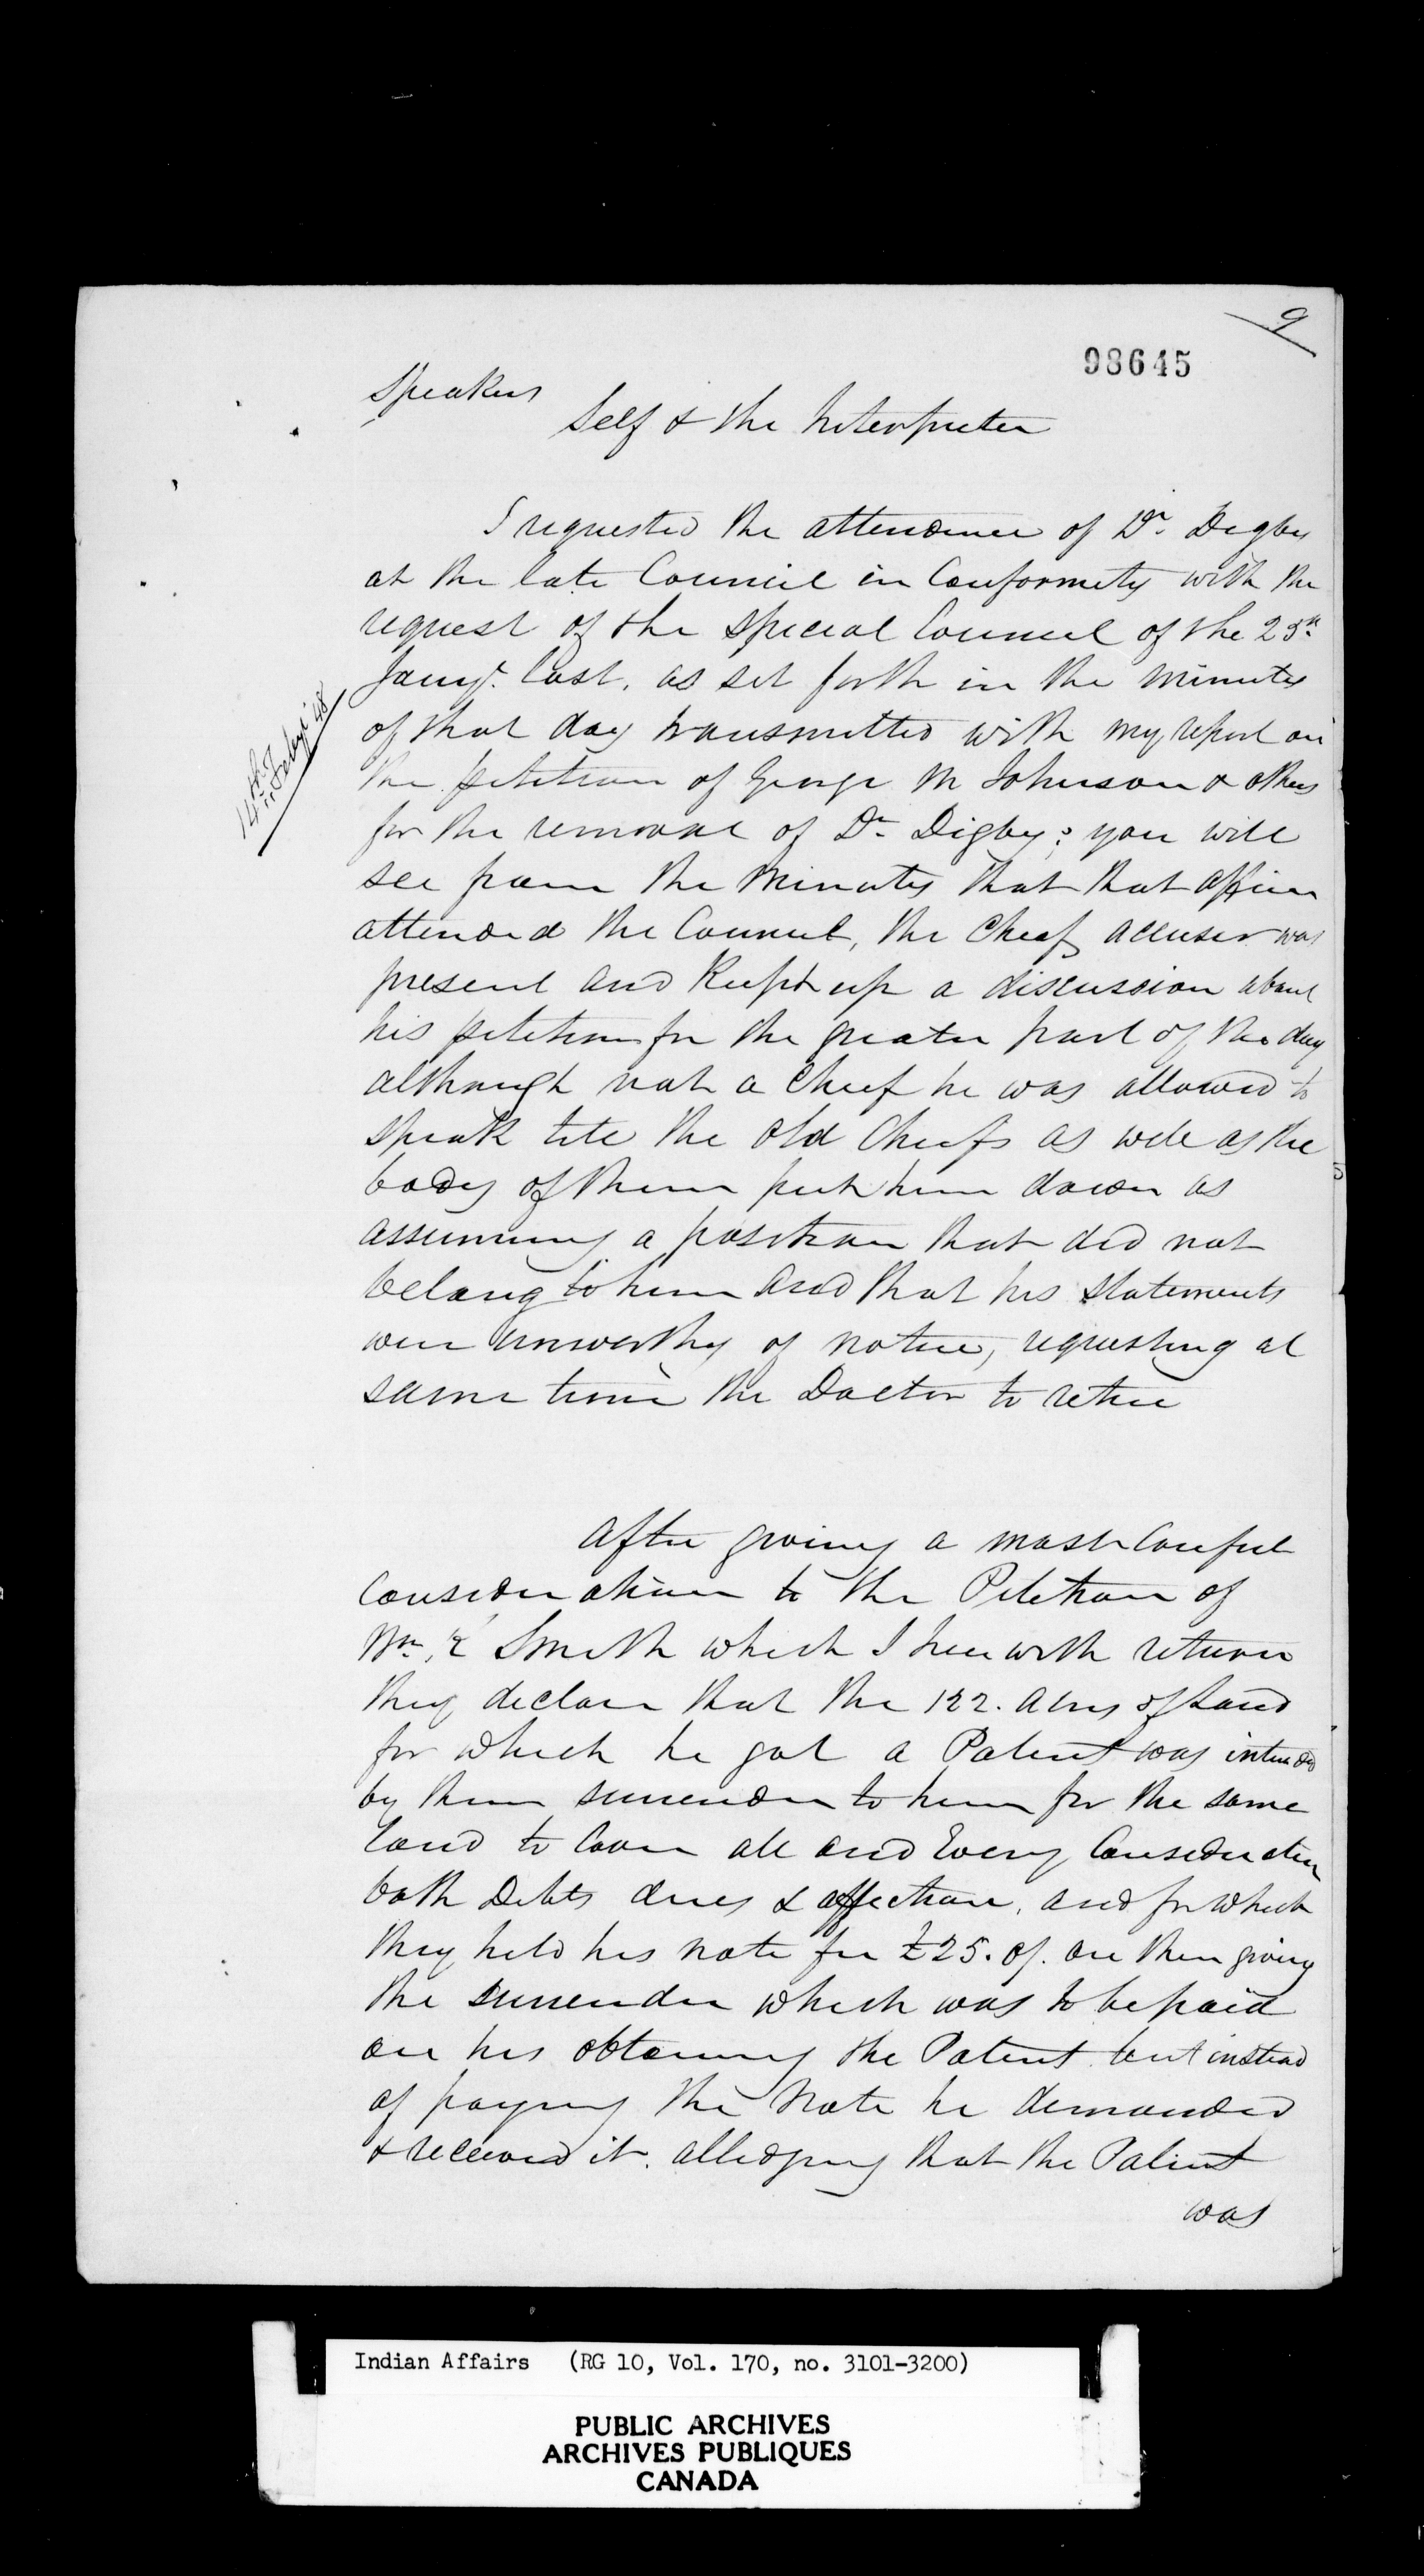 9
98645
Speakers
Self & the Interpreter
I requested the attendance of Dr. Digby
at the late Council in Conformity with the
request of the Special Council of the 25th
Jany. last, as set forth in the minutes
of that day transmitted with my report on
14th Feby '48
the petition of George M Johnson & others
for the removal of Dr Digby; you will
see from the Minutes that that officer
attended the Council, the Chief accuser was
present and Keept up a discussion about
his petition for the greater part of the day
although not a Chief he was allowed to
speak till the old Chiefs as well as the
body of them put him down as
assuming a position that did not
belong to him and that his statements
were unworthy of notice, requesting at
same time the Doctor to retire
After giving a most careful
Consideration to the Petition of
Wm. K Smith which I herewith return
they declare that the 122. acres of Land
for which he got a Patent was intended
by them surrender to him for the same
land to Cover all and Every Consideration
both Debts dues & affection, and for which
they held his note for £25. on them giving
the surrender which was to be paid
on his obtaining the Patent but instead
of paying the Note he demanded
& received it. alledging that the Patent
was
Indian Affairs (RG 10, Vol. 170, no. 3101-3200)
PUBLIC ARCHIVES
ARCHIVES PUBLIQUES
CANADA